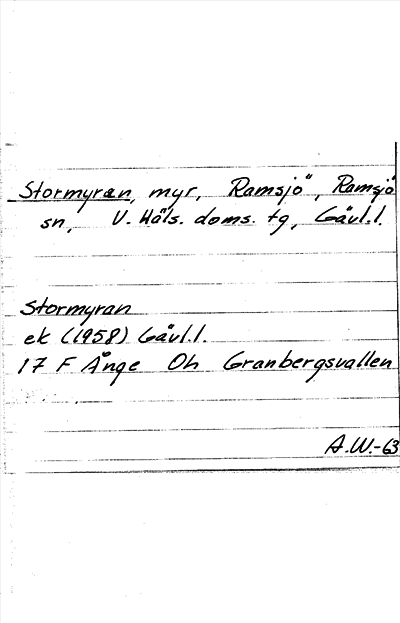 Stormyran, myr, Ramsjö, Ramsjö
sn, V. Häls. doms. tg, Gävl.l.
Stormyran
ek (1958) Gävl.l.
17 F Ånge Oh Granbergsvallen
A.W.-63